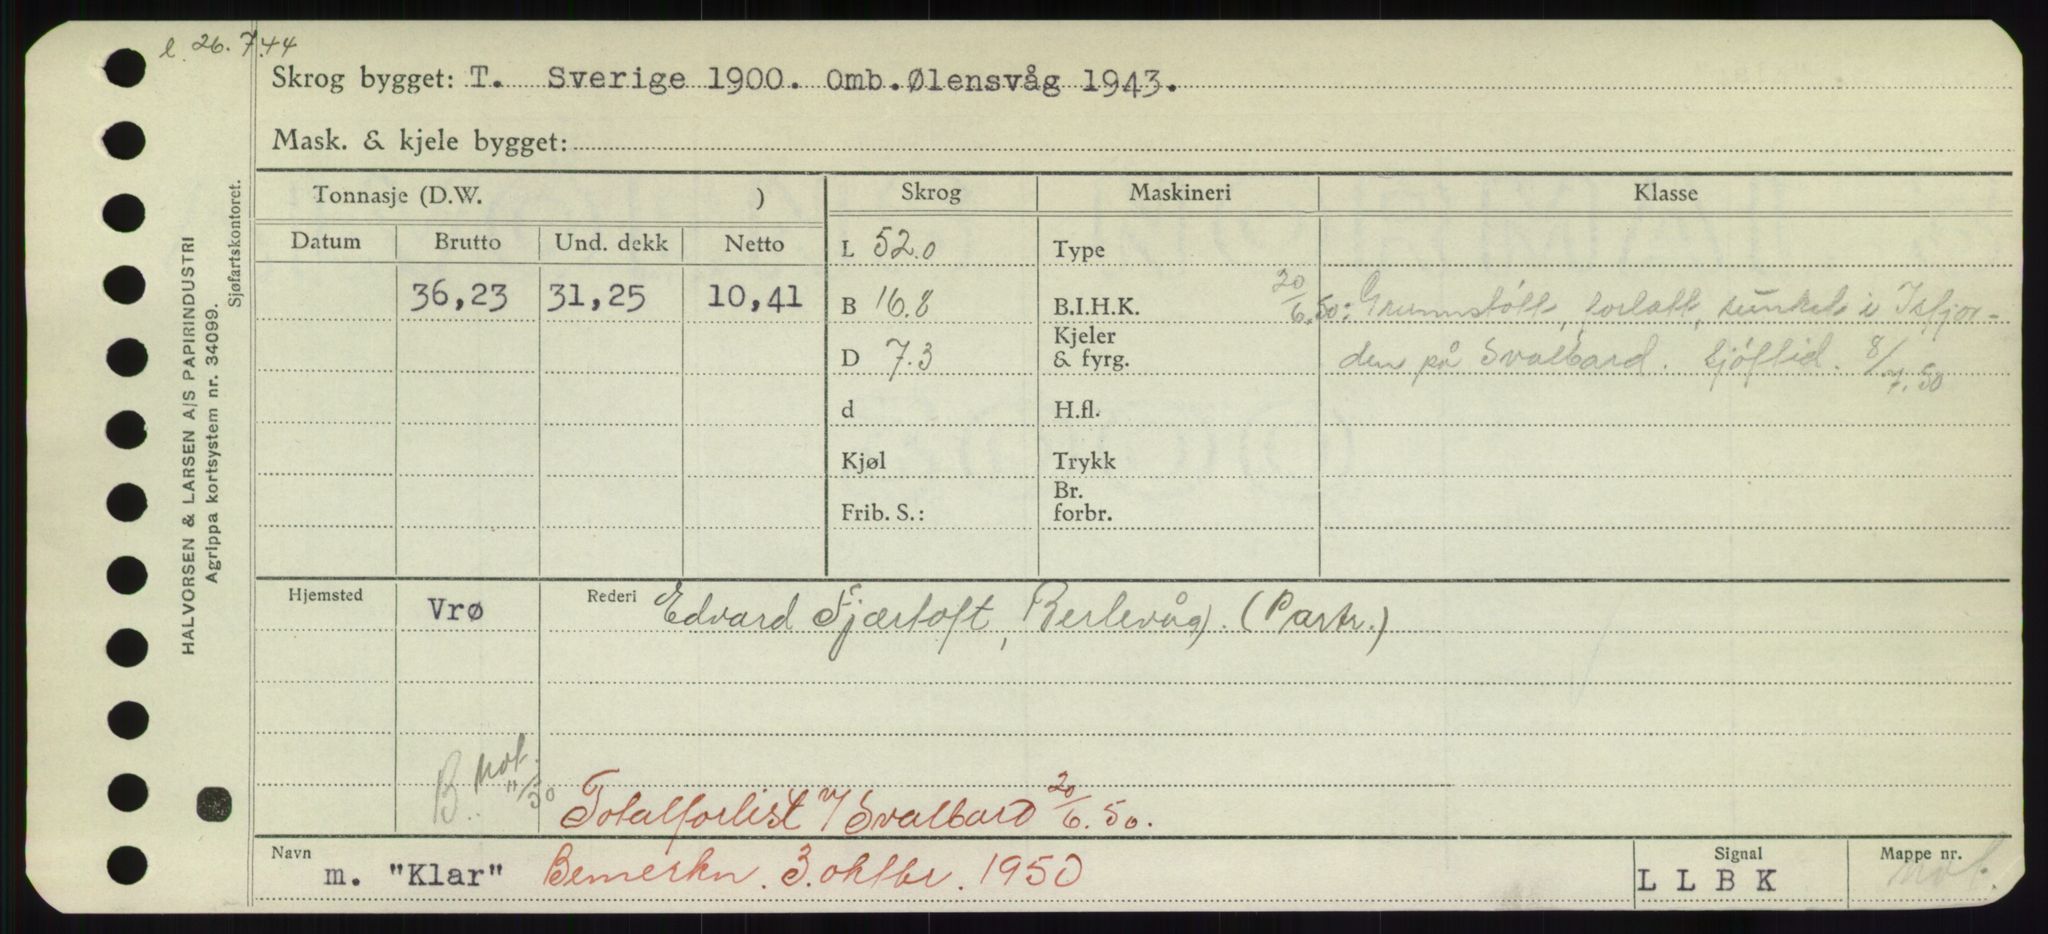 l. 26.7.44
Skrog bygget: T. Sverige 1900. Omb. Ølensvåg 1943.
Mask. & kjele bygget:
HALVORSEN & LARSEN A/S PAPIRINDUSTRI
Agrippa kortsystem nr. 34099.
Sjøfartskontoret.
Tonnasje (D.W. ) Skrog Maskineri Klasse
Datum Brutto Und. dekk Netto L 52.0 Type
36,23 31,25 10,41 B 16.8 B.I.H.K. 20/6.50: Grunnstøtt, forlatt, sunket i Isfjor-
D 7.3 Kjeler & fyrg. den på Svalbard. Sjøftid. 8/7.50
d H.fl.
Kjøl Trykk
Frib. S.: Br. forbr.
Hjemsted Vrø Rederi Edvard Fjærtoft, Berlevåg. (Partr.)
B. not. 11/50
Totalforlist v/ Svalbard 20/6.50.
Navn m. "Klar" Bemerkn. 3. oktbr. 1950 Signal L L B K Mappe nr. not.